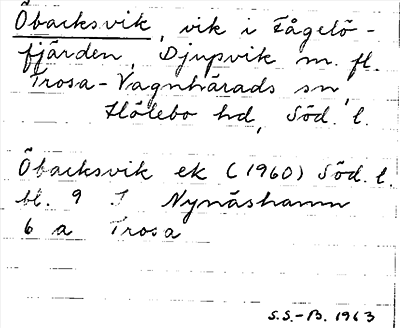 Öbacksvik, vik i Fågelö-
fjärden, Djupvik m. fl.
Trosa-Vagnhärads sn,
Hölebo hd, Söd. l.
Öbacksvik ek (1960) Söd. l.
bl. 9 I Nynäshamn
6 a Trosa
S.S.-B. 1963